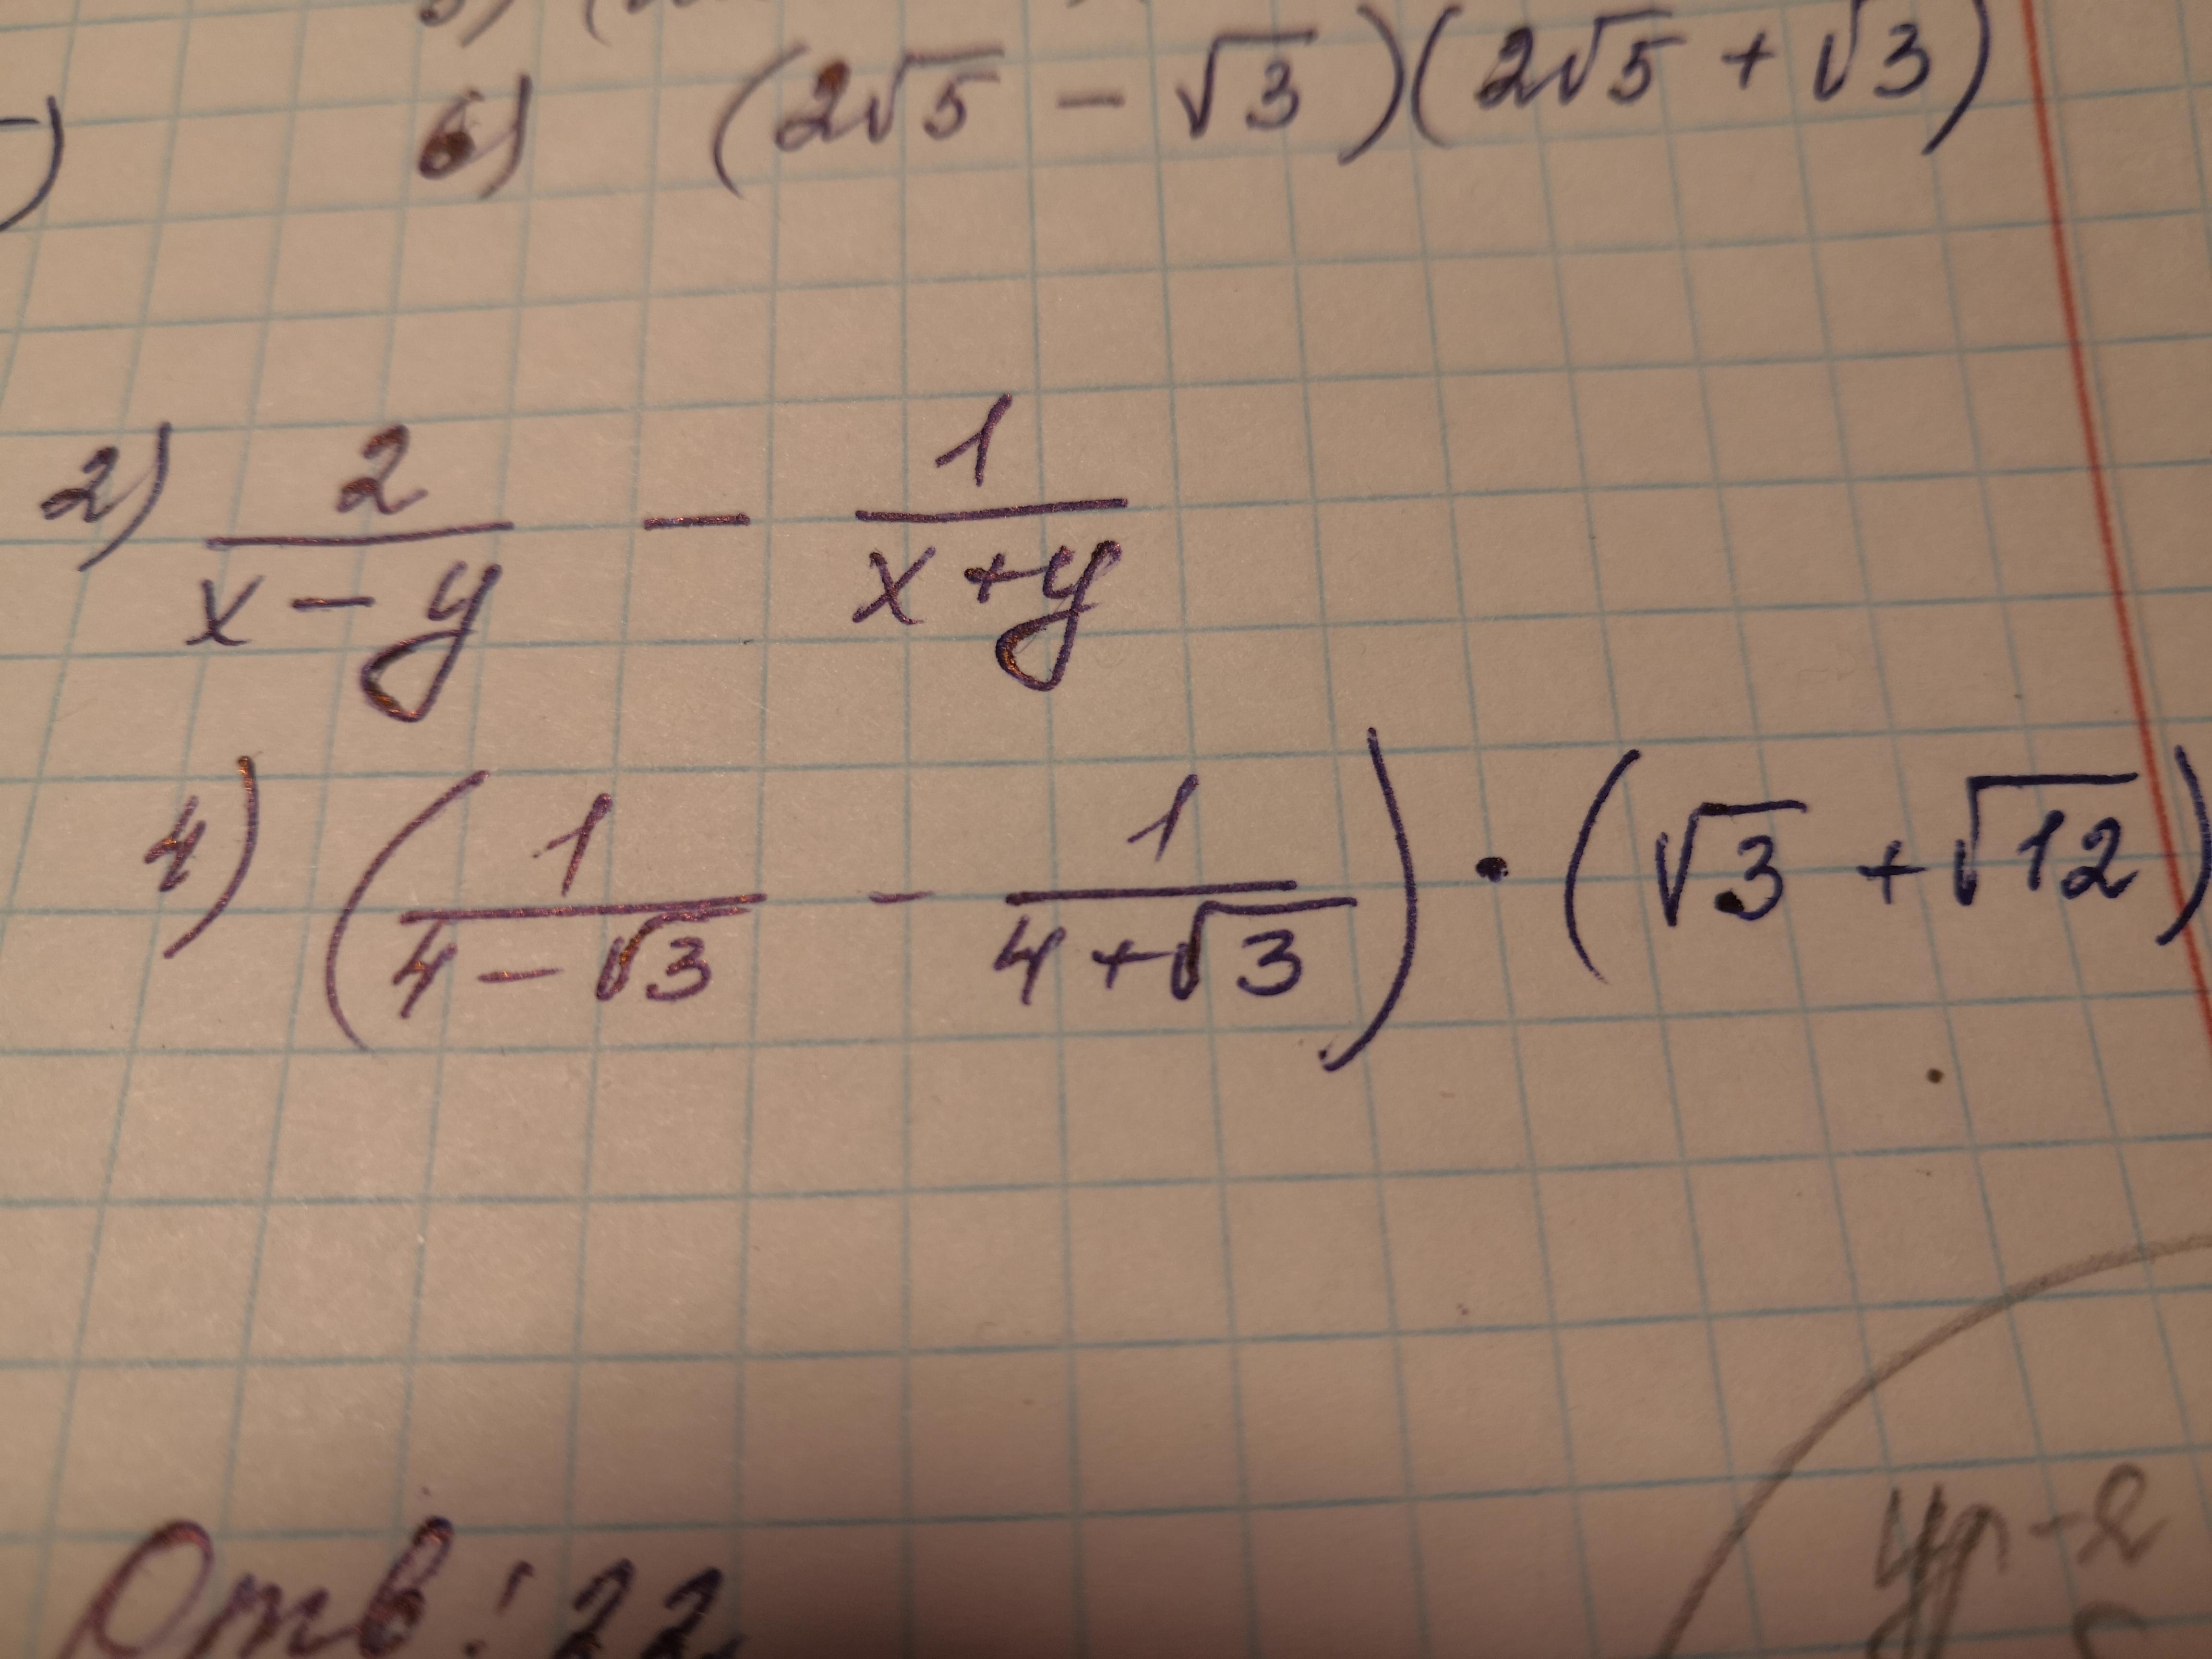 6) (2√5 − √3)(2√5 + √3)
2) 2/(x − y) − 1/(x + y)
4) (1/(4 − √3) − 1/(4 + √3)) · (√3 + √12)
Отв: 22